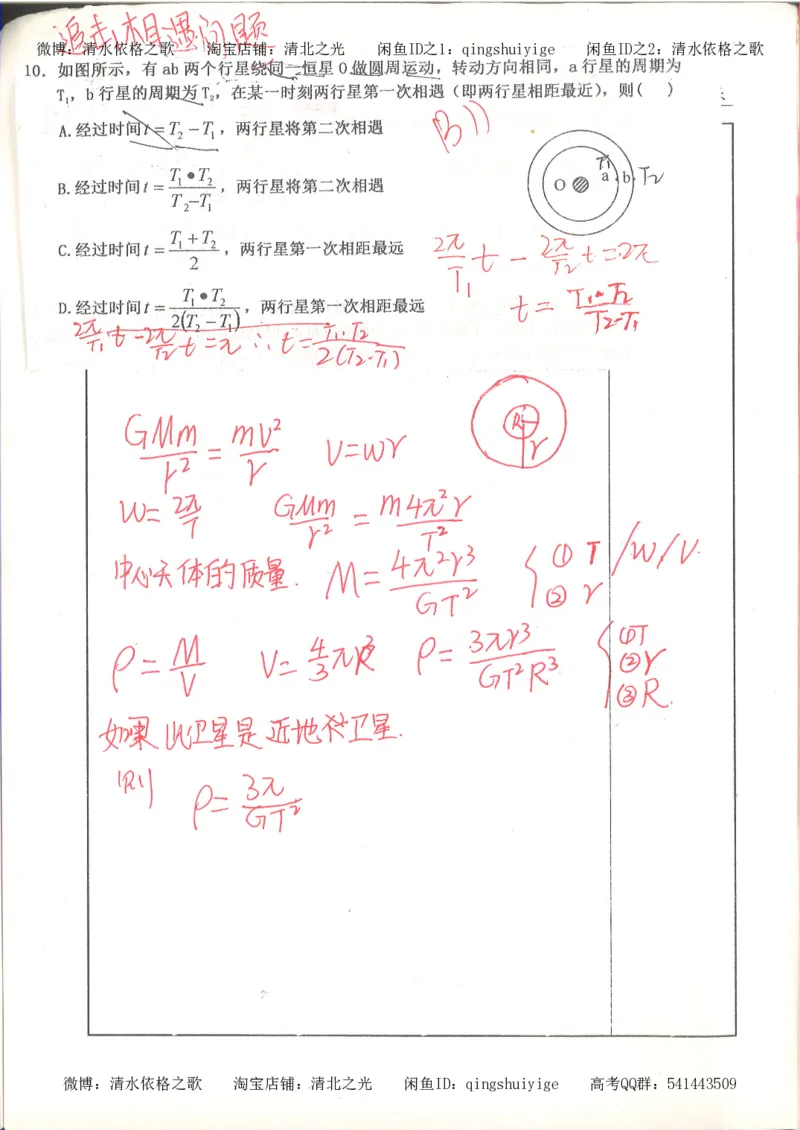 追击、相遇问题
微博：清水依格之歌 淘宝店铺：清北之光 闲鱼ID之1：qingshuiyige 闲鱼ID之2：清水依格之歌
10. 如图所示，有 ab 两个行星绕同一恒星 O 做圆周运动，转动方向相同，a 行星的周期为
T₁，b 行星的周期为 T₂，在某一时刻两行星第一次相遇（即两行星相距最近），则( )
A.经过时间 t = T₂ − T₁，两行星将第二次相遇
B.经过时间 t = T₁•T₂ / (T₂−T₁)，两行星将第二次相遇
C.经过时间 t = (T₁+T₂) / 2，两行星第一次相距最远
D.经过时间 t = T₁•T₂ / 2(T₂−T₁)，两行星第一次相距最远
O a b T₁ T₂
2π/T₁ t − 2π/T₂ t = 2π
t = T₁•T₂ / (T₂−T₁)
2π/T₁ t − 2π/T₂ t = π ∴ t = T₁·T₂ / 2(T₂−T₁)
R r
GMm/r² = mv²/r v=wr
w = 2π/T GMm/r² = m4π²r/T²
中心天体的质量. M = 4π²r³/GT² { ① T /w/v. ② r
ρ = M/V V = 4/3 πR³ ρ = 3πr³/GT²R³ { ①T ②r ③R.
如果此卫星是近地卫星.
则 ρ = 3π/GT²
微博：清水依格之歌 淘宝店铺：清北之光 闲鱼ID：qingshuiyige 高考QQ群：541443509